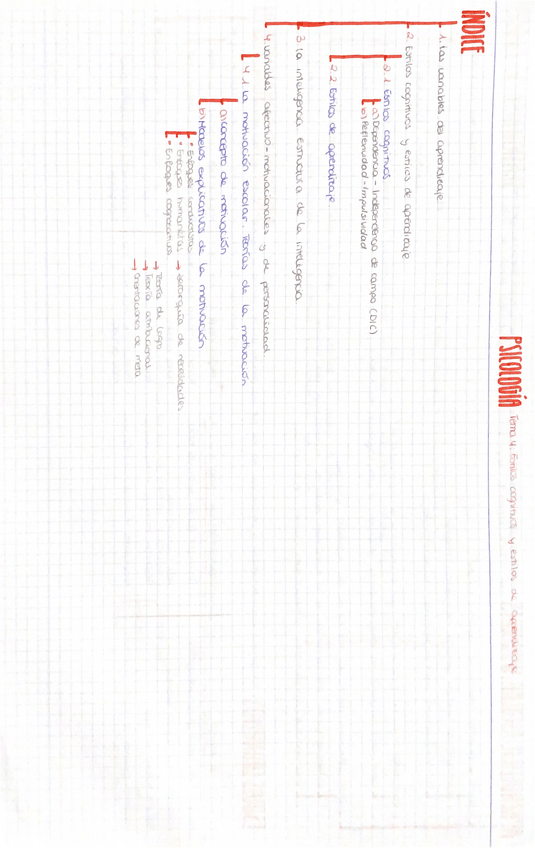 PSICOLOGÍA Tema 4. Estilos cognitivos y estilos de aprendizaje
ÍNDICE
1. Las variables de aprendizaje
2. Estilos cognitivos y estilos de aprendizaje
2.1 Estilos cognitivos
a) Dependencia - Independencia de campo (DIC)
b) Reflexividad - Impulsividad
2.2 Estilos de aprendizaje
3 La inteligencia. Estructura de la inteligencia
4. Variables afectivo-motivacionales y de personalidad
4.1 La motivación escolar. Teorías de la motivación
a) Concepto de motivación
b) Modelos explicativos de la motivación
• Enfoques conductistas
• Enfoques humanistas → Jerarquía de necesidades
• Enfoques cognoscitivos → Teoría de logro
→ Teoría atribucional
→ Orientaciones de meta